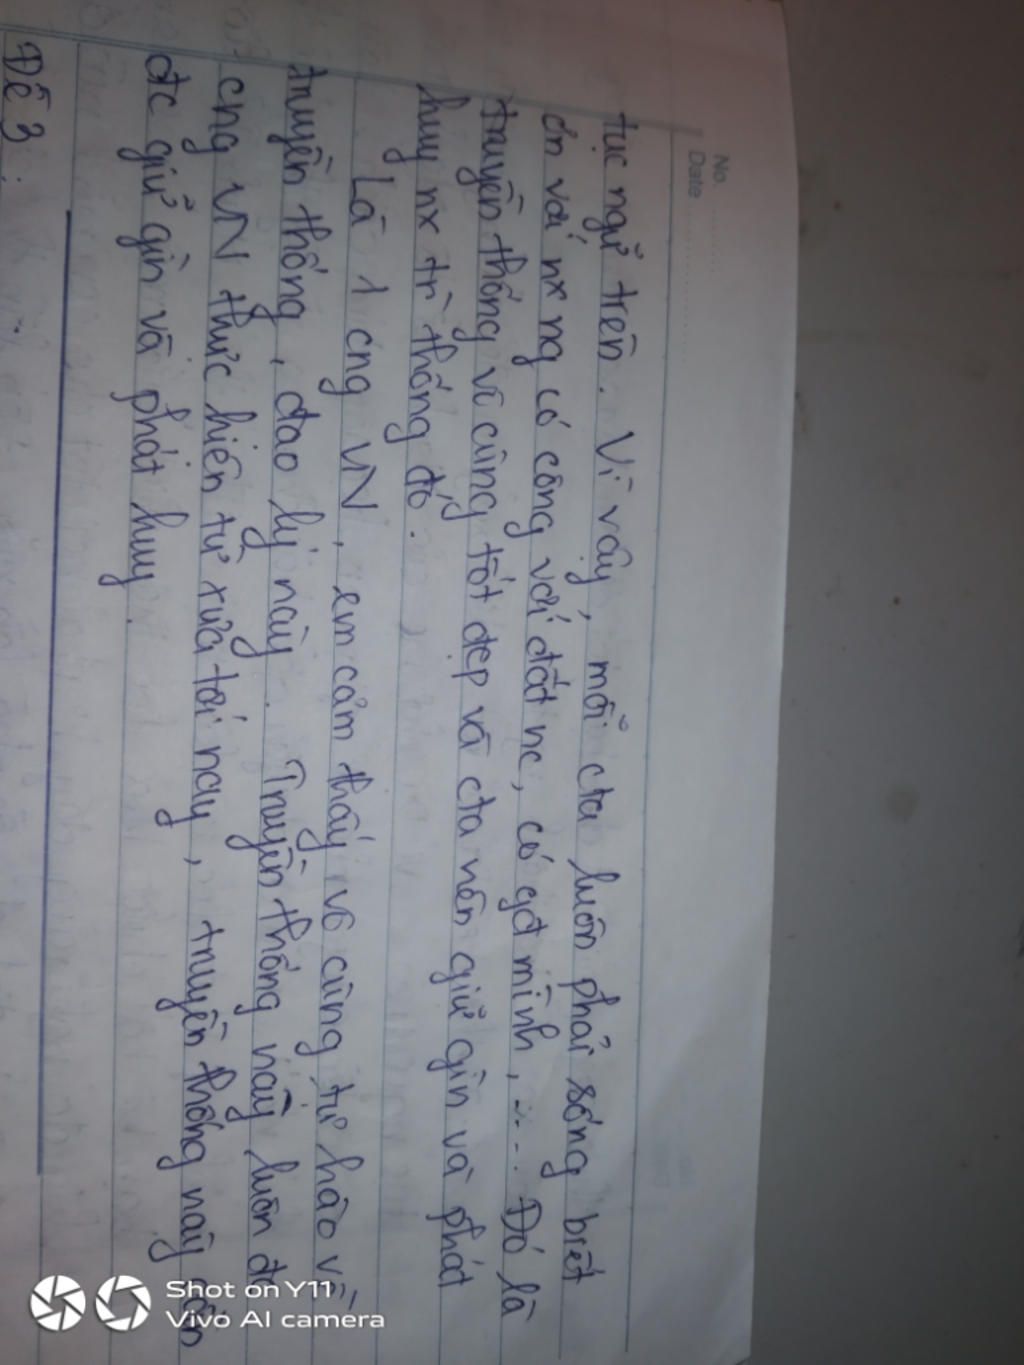 No.
Date
tục ngữ trên. Vì vậy, mỗi cta luôn phải sống biết
ơn với nx ng có công với đất nc, có gđ mình, .... Đó là
truyền thống vô cùng tốt đẹp và cta nên giữ gìn và phát
huy nx tr` thống đó.
Là 1 cng VN, em cảm thấy vô cùng tự hào về
truyền thống, đạo lý này. Truyền thống này luôn đc
cng VN thực hiện từ xưa tới nay, truyền thống này cần
đc giữ gìn và phát huy.
Đề 3:
Shot on Y11
Vivo AI camera